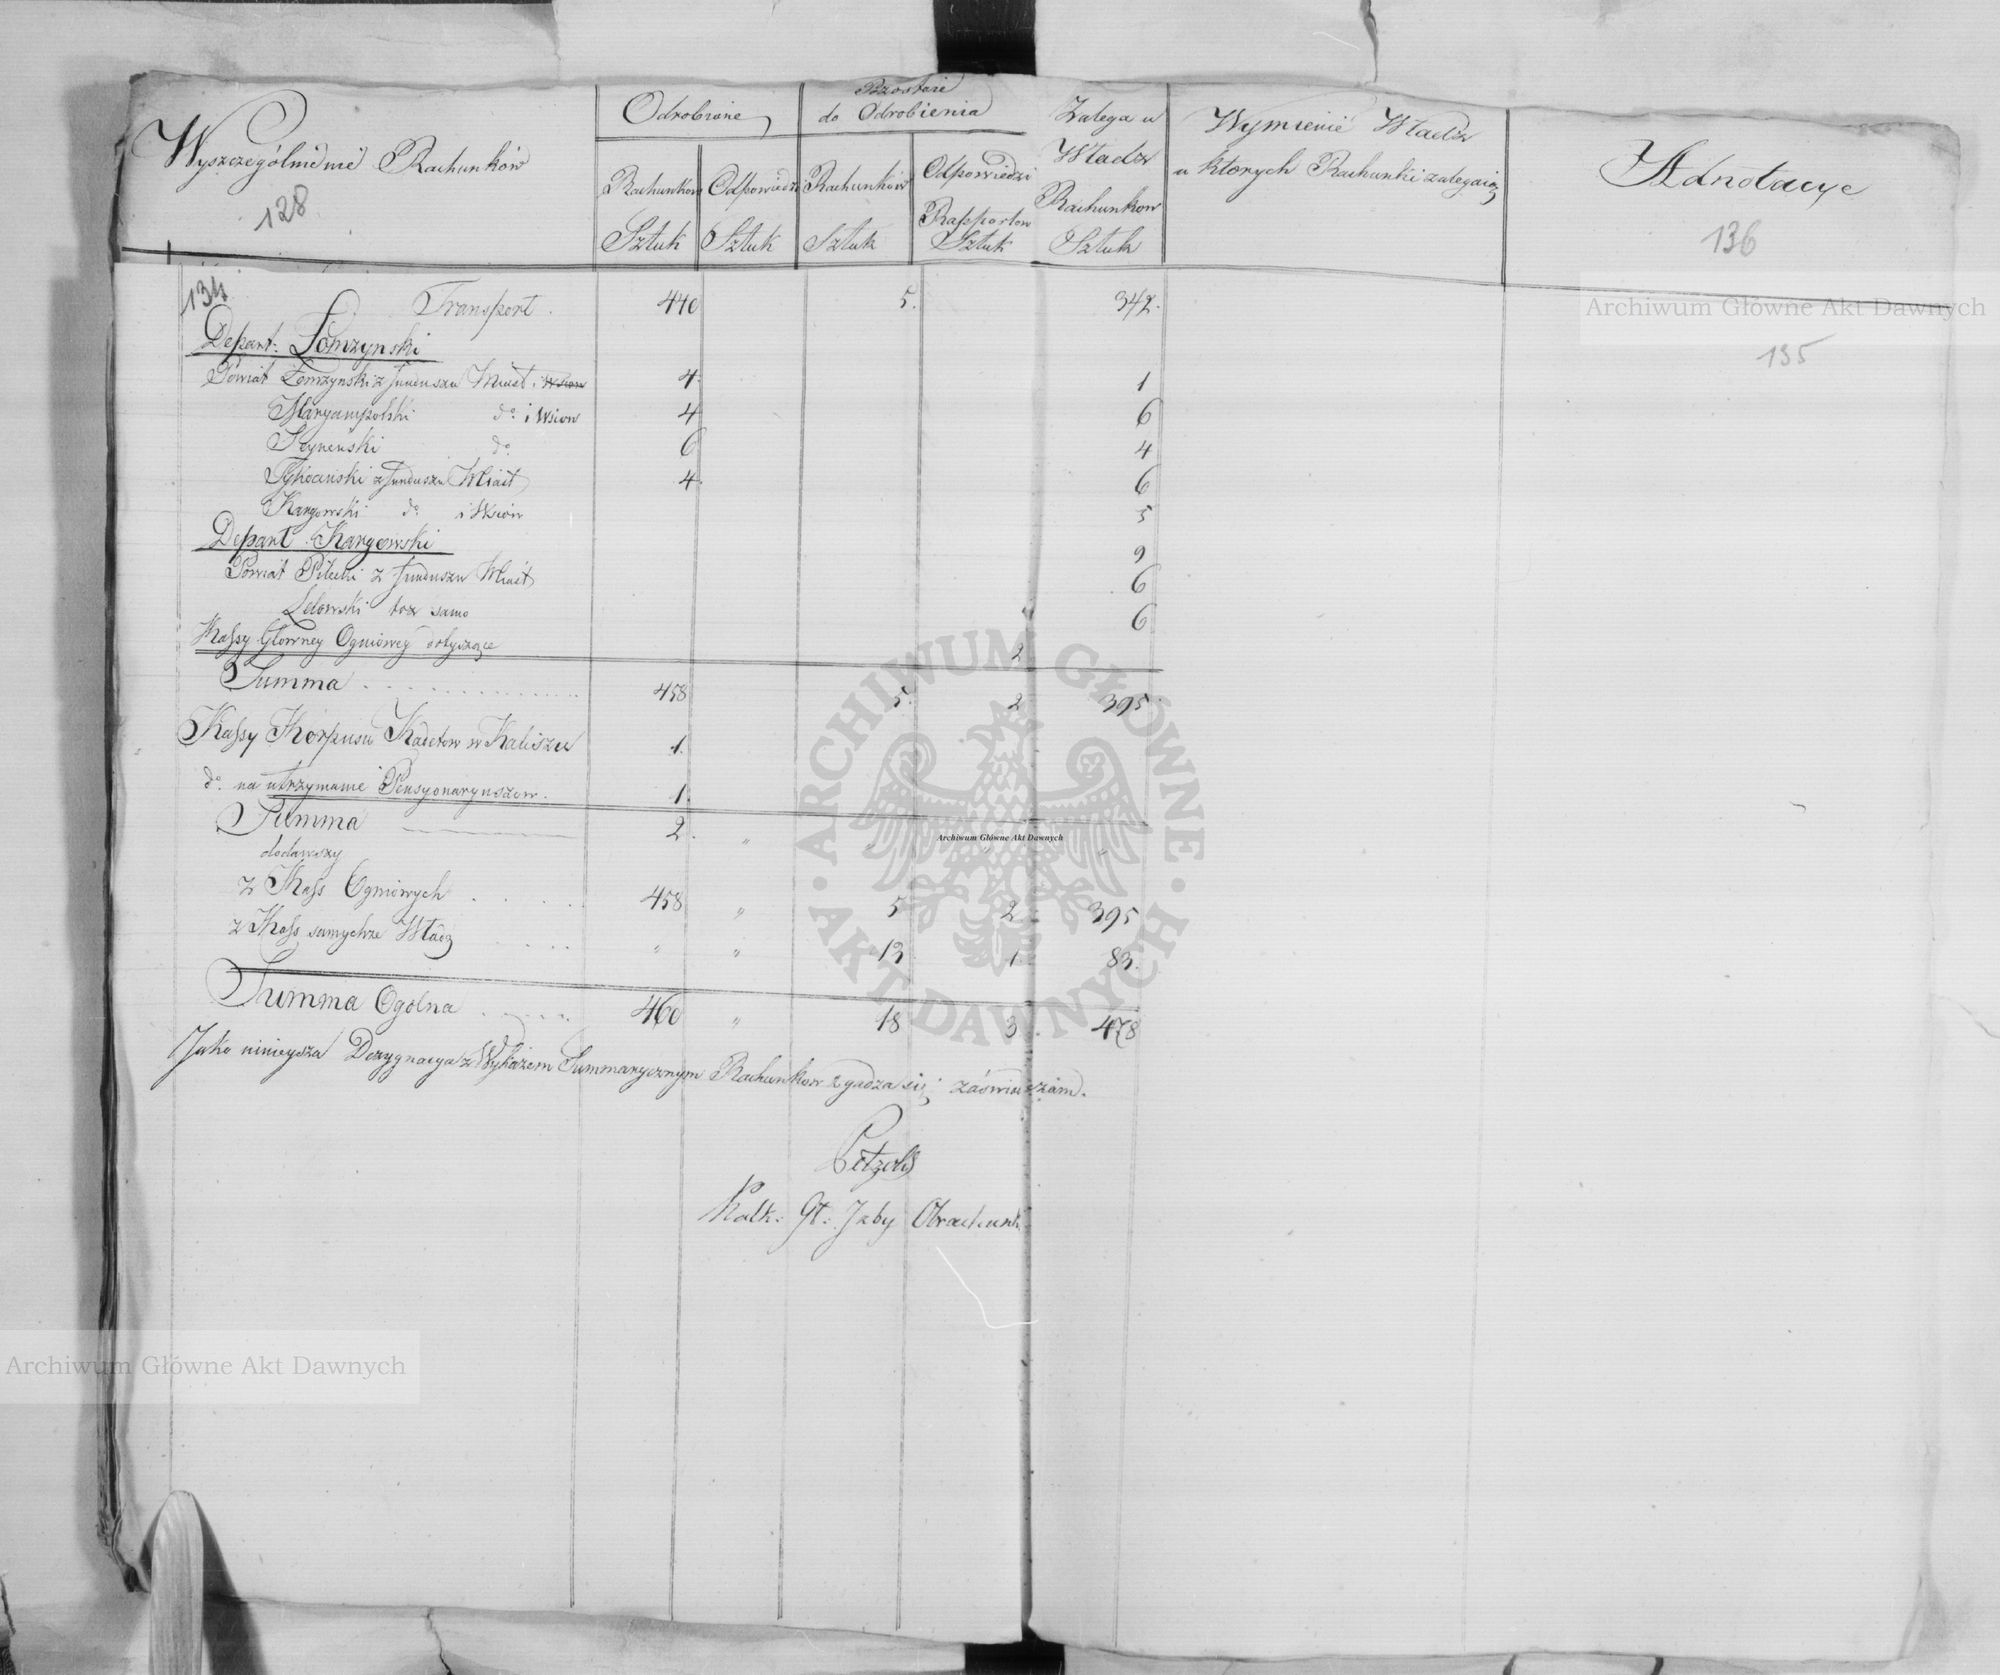 Wyszczególnienie Rachunków
128
Odrobione
Rachunkow Sztuk
Odpowiedzi Sztuk
Pozostaie do Odrobienia
Rachunków Sztuk
Odpowiedzi Rapportow Sztuk
Zalega u Władz Rachunkow Sztuk
Wymienić Władze
u ktorych Rachunki zalegaią
Adnotacye
136
135
134
Transport. 440 5. 342.
Depart: Łomzynski
Powiat Łomzynski z funduszu Miast i Wsiow 4. 1
Maryampolski do i Wsiow 4 6
Seyneński do 6 4
Tykocinski z funduszu Miast 4. 6
do i Wsiów 5
Depart. 9
Powiat Pilecki z funduszu Miast 6
Lelowski toż samo 6
Kassy Głowney Ogniowey dotyczące 2
Summa 458 5. 2 395
Kassy Korpusu Kadetow w Kaliszu 1.
do na utrzymanie Pensyonaryuszow. 1.
Summa 2. " " " "
dodawszy
z Kass Ogniowych 458 " 5 2 395
z Kass samychże Władz " " 13 1 83.
Summa Ogolna 460 " 18 3 478
Jako ninieysza Dezygnacya z Wykazem Summarycznym Rachunkow zgadza się; zaświadczam.
Petzold
Kalk: Gł: Izby Obrachunk:
Archiwum Główne Akt Dawnych
Archiwum Główne Akt Dawnych
Archiwum Główne Akt Dawnych
ARCHIWUM GŁÓWNE AKT DAWNYCH